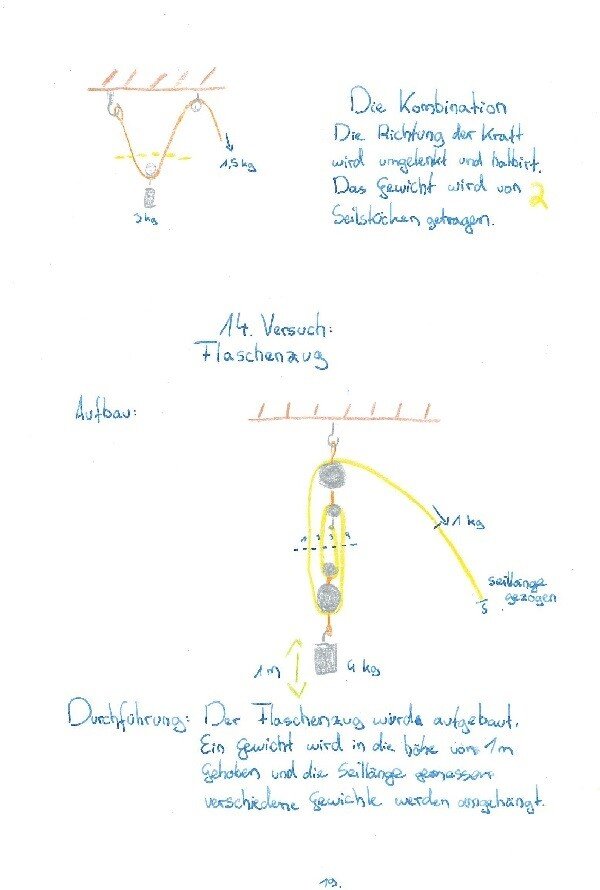 Die Kombination
Die Richtung der Kraft
wird umgelenkt und halbirt.
Das Gewicht wird von 2
Seilstücken getragen.
1,5 kg
3 kg
14. Versuch:
Flaschenzug
Aufbau:
1 2 3 4
1 kg
seillänge
gezogen
s
1 m
4 kg
Durchführung: Der Flaschenzug wurde aufgebaut.
Ein Gewicht wird in die höhe von 1m
Gehoben und die Seillänge gemessen
verschiedene Gewichte werden angehängt.
19.